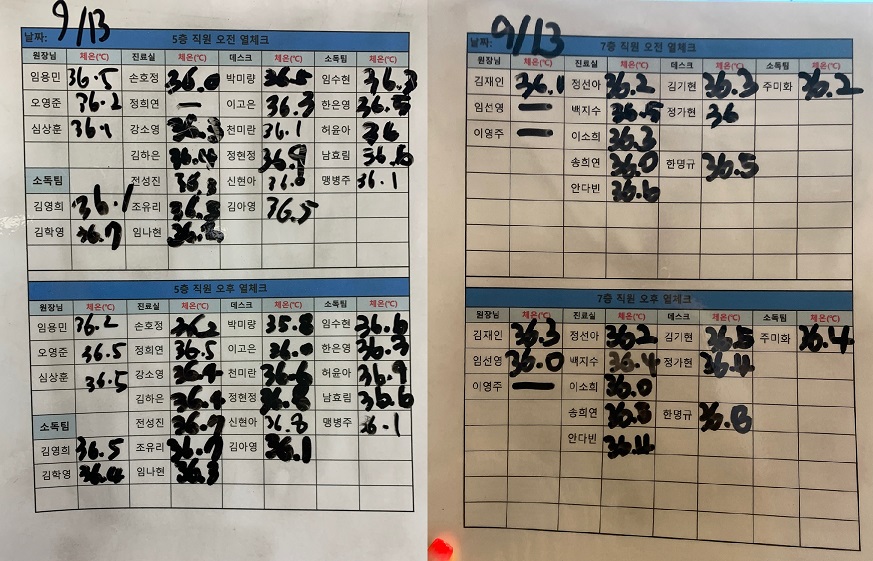 날짜: 9/13
5층 직원 오전 열체크
원장님 체온(℃) 진료실 체온(℃) 데스크 체온(℃) 소독팀 체온(℃)
임용민 36.5 손호정 36.0 박미량 임수현 36.3
오영준 36.2 정희연 — 이고은 36.3 한은영 36.5
심상훈 36.1 강소영 36.3 천미란 36.1 허윤아 36
김하은 36.4 정현정 36.9 남효림 36.6
소독팀 전성진 신현아 맹병주 36.1
김영희 36.1 조유리 36.5 김아영 36.5
김학영 36.7 임나현
5층 직원 오후 열체크
원장님 체온(℃) 진료실 체온(℃) 데스크 체온(℃) 소독팀 체온(℃)
임용민 36.2 손호정 36.2 박미량 35.8 임수현 36.6
오영준 36.5 정희연 36.5 이고은 36.0 한은영 36.3
심상훈 36.5 강소영 36.4 천미란 36.6 허윤아 36.9
김하은 36.4 정현정 남효림 36.6
소독팀 전성진 36.7 신현아 36.8 맹병주 36.1
김영희 36.5 조유리 36.7 김아영 36.1
김학영 36.4 임나현 36.3
날짜: 9/13
7층 직원 오전 열체크
원장님 체온(℃) 진료실 체온(℃) 데스크 체온(℃) 소독팀 체온(℃)
김재인 36.1 정선아 36.2 김기현 36.3 주미화 36.2
임선영 — 백지수 36.5 정가현 36
이영주 — 이소희 36.3
송희연 36.0 한명규 36.5
안다빈 36.6
7층 직원 오후 열체크
원장님 체온(℃) 진료실 체온(℃) 데스크 체온(℃) 소독팀 체온(℃)
김재인 36.3 정선아 36.2 김기현 36.5 주미화 36.4
임선영 36.0 백지수 36.4 정가현 36.4
이영주 — 이소희 36.0
송희연 36.3 한명규
안다빈 36.4